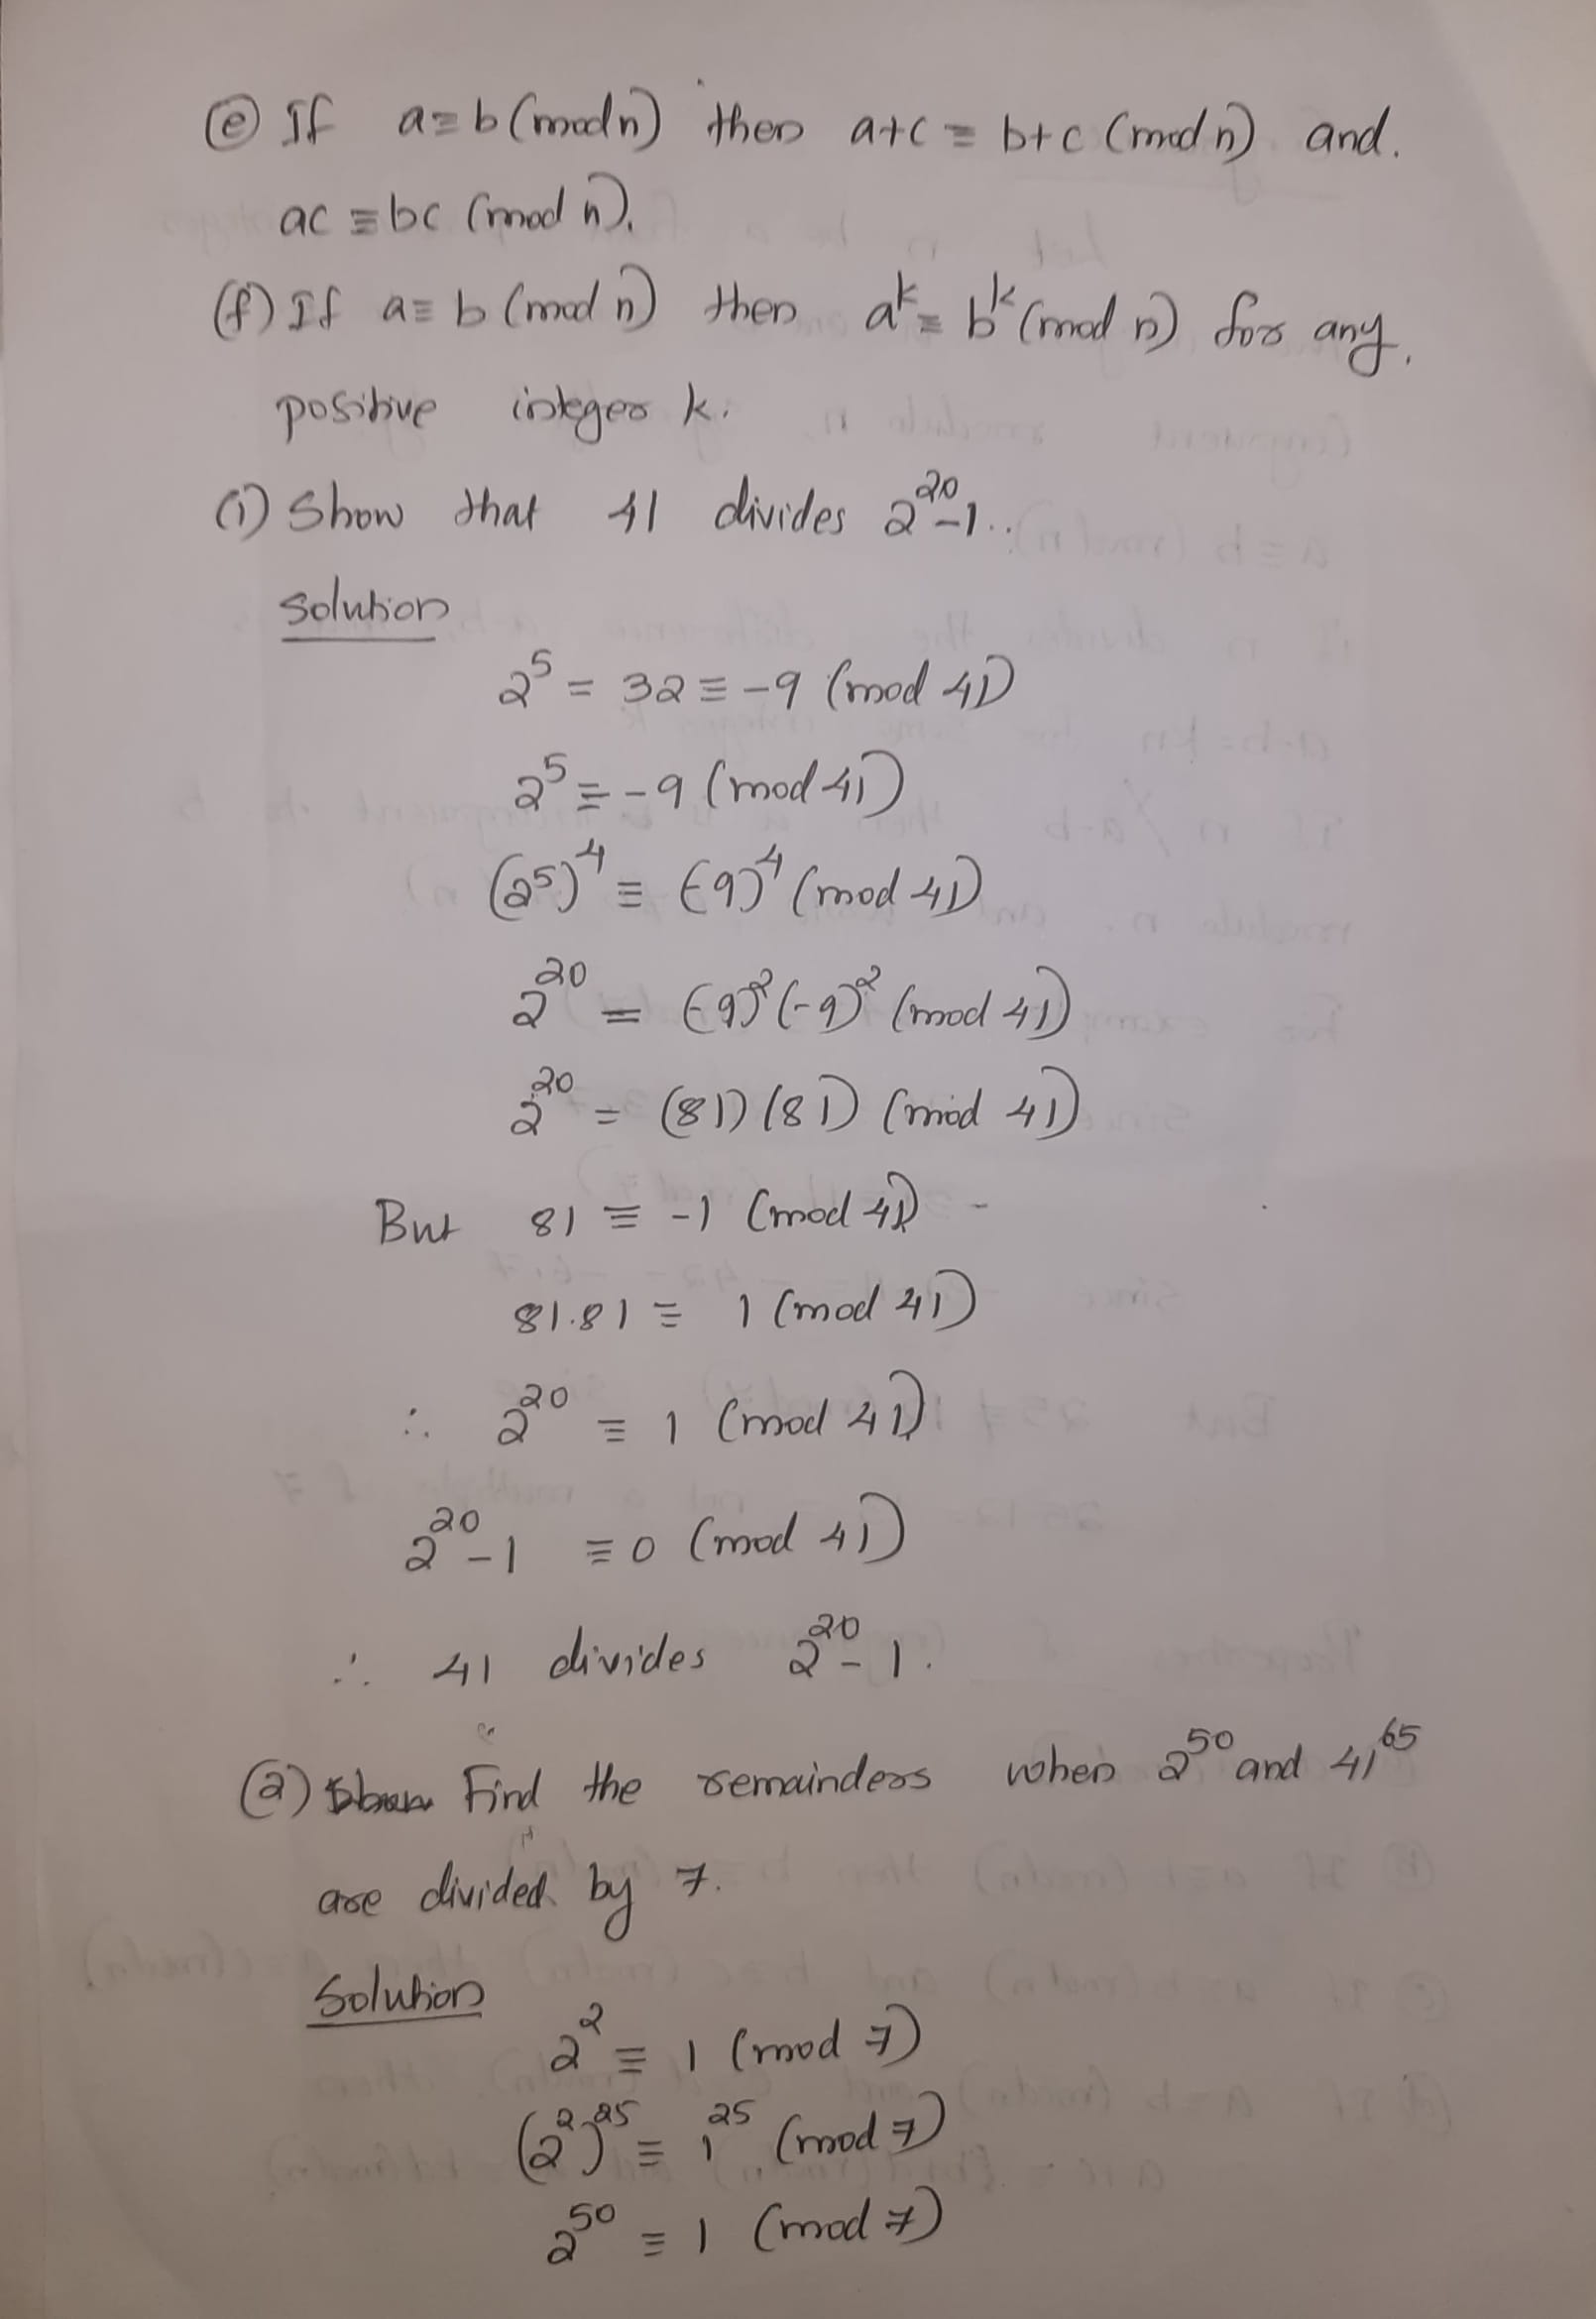 (e) If a≡b (mod n) then a+c ≡ b+c (mod n) and.
ac ≡ bc (mod n).
(f) If a≡ b (mod n) then aᵏ ≡ bᵏ (mod n) for any.
positive integer k.
(1) Show that 41 divides 2²⁰-1..
Solution
2⁵ = 32 ≡ -9 (mod 41)
2⁵ ≡ -9 (mod 41)
(2⁵)⁴ ≡ (-9)⁴ (mod 41)
2²⁰ = (-9)² (-9)² (mod 41)
2²⁰ = (81) (81) (mod 41)
But 81 ≡ -1 (mod 41) -
81.81 ≡ 1 (mod 41)
∴ 2²⁰ ≡ 1 (mod 41)
2²⁰-1 ≡ 0 (mod 41)
∴ 41 divides 2²⁰-1.
(2) Find the remainders when 2⁵⁰ and 41⁶⁵
are divided by 7.
Solution
2² ≡ 1 (mod 7)
(2²)²⁵ ≡ 1²⁵ (mod 7)
2⁵⁰ ≡ 1 (mod 7)